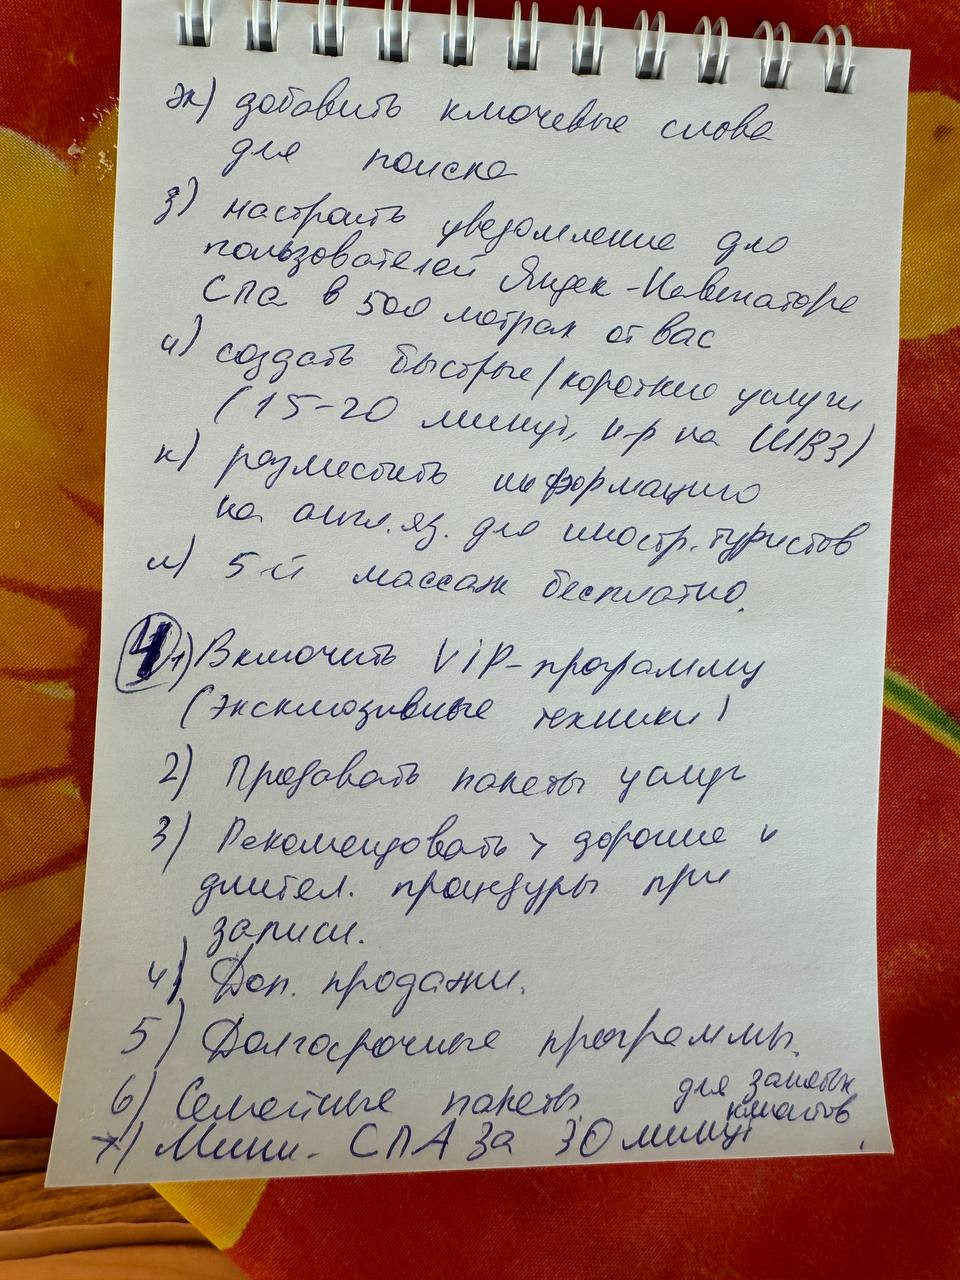 ж) добавить ключевые слова
для поиска
з) настроить уведомление для
пользователей Яндек-Навигаторе
СПА в 500 метрах от вас
и) создать быстрые/короткие услуги
(15-20 минут, н-р на ШВЗ)
к) разместить информацию
на англ. яз. для иностр. туристов
л) 5-й массаж бесплатно.
4 1) Включить ViP-программу
(эксклюзивные техники)
2) Продавать пакеты услуг
3) Рекомендовать > дорогие и
длител. процедуры при
записи.
4) Доп. продажи.
5) Долгосрочные программы.
6) Семейные пакеты
7) Мини-СПА за 30 минут для занятых
клиентов.